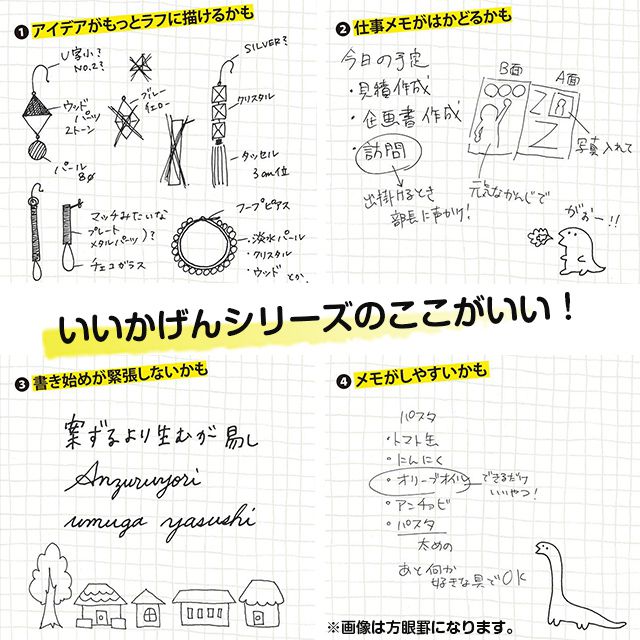 ❶ アイデアがもっとラフに描けるかも
U字小?
NO.2?
ウッド
パーツ
2トーン
パール
8φ
ブルー
イエロー
SILVER?
クリスタル
タッセル
3cm位
マッチみたいな
プレート
メタルパーツ)?
チェコガラス
フープピアス
・淡水パール
・クリスタル
・ウッド とか
❷ 仕事メモがはかどるかも
今日の予定
・見積作成
・企画書作成
・訪問
出掛けるとき
部長に声かけ!
B面
A面
写真入れて
元気なかんじで
がおー!!
いいかげんシリーズのここがいい!
❸ 書き始めが緊張しないかも
案ずるより生むが易し
Anzuruyori
umuga yasushi
❹ メモがしやすいかも
パスタ
・トマト缶
・にんにく
・オリーブオイル
できるだけ
いいやつ!
・アンチョビ
・パスタ
太めの
あと何か
好きな具でOK
※画像は方眼罫になります。